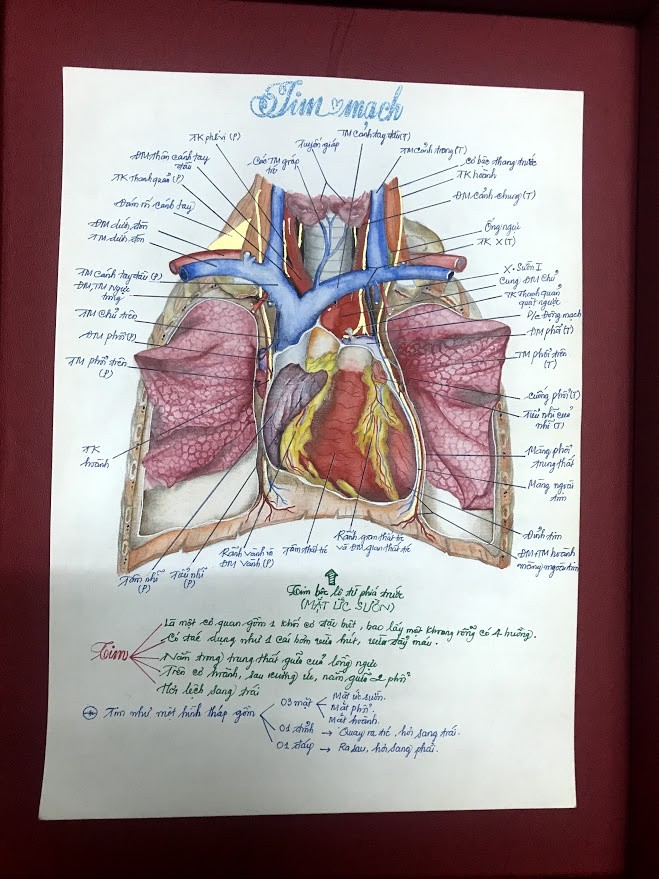 Tim mạch
TK phế vị (P)
ĐM thân cánh tay
đầu
TK Thanh quản (P)
Đám rối cánh tay
ĐM dưới đòn
TM dưới đòn
TM cánh tay đầu (P)
ĐM, TM ngực
trong
TM chủ trên
ĐM phổi (P)
TM phổi trên
(P)
TK
hoành
Tâm nhĩ
(P)
Tiểu nhĩ
(P)
Các TM giáp
dưới
Tuyến giáp
TM cánh tay đầu (T)
TM cảnh trong (T)
Cơ bậc thang trước
TK hoành
ĐM cảnh chung (T)
Ống ngực
TK X (T)
X. Sườn I
Cung ĐM Chủ
TK Thanh quản
quặt ngược
D/c Động mạch
ĐM phổi (T)
TM phổi trên
(T)
cuống phổi (T)
Tiểu nhĩ của
nhĩ (T)
Màng phổi
trung thất
Màng ngoài
tim
Đỉnh tim
ĐM TM hoành
màng ngoài tim
Rãnh vành và
ĐM Vành (P)
Tâm thất (P)
Rãnh gian thất tr
và ĐM gian thất tr
Tim bộc lộ từ phía trước
(MẶT ỨC SƯỜN)
Tim
Là một cơ quan gồm 1 khối cơ đặc biệt, bao lấy một khoang rỗng có 4 buồng.
Có tác dụng như 1 cái bơm vừa hút, vừa đẩy máu.
Nằm trong trung thất giữa của lồng ngực
Trên cơ hoành, sau xương ức, nằm giữa 2 phổi
Hơi lệch sang trái
Tim như một hình tháp gồm
03 mặt
Mặt ức sườn.
Mặt phổi.
Mặt hoành.
01 đỉnh → Quay ra trc, hơi sang trái.
01 đáy → Ra sau, hơi sang phải.